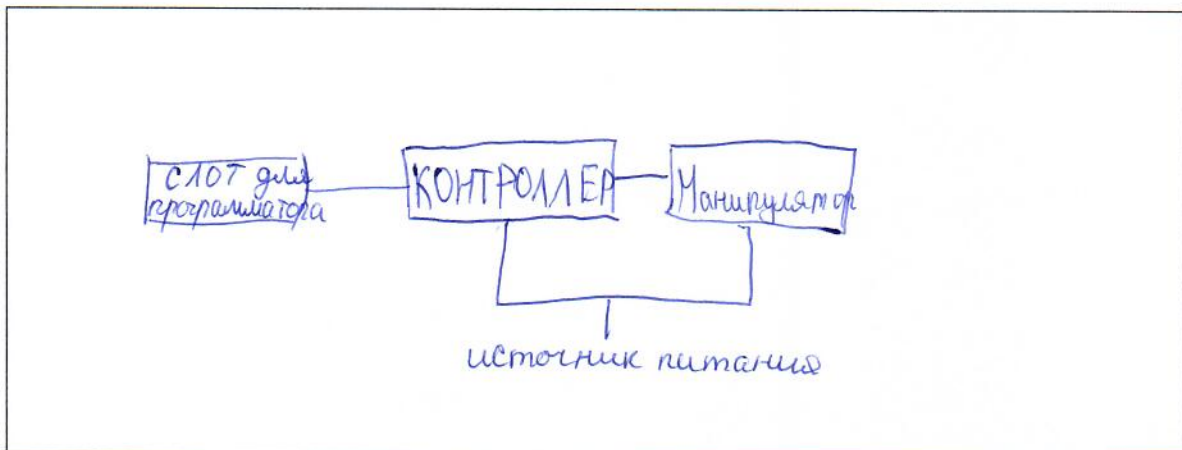 СЛОТ для
программатора
КОНТРОЛЛЕР
Манипулятор
источник питания